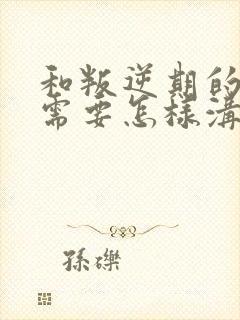 和叛逆期的
需要怎样溝
孫礫